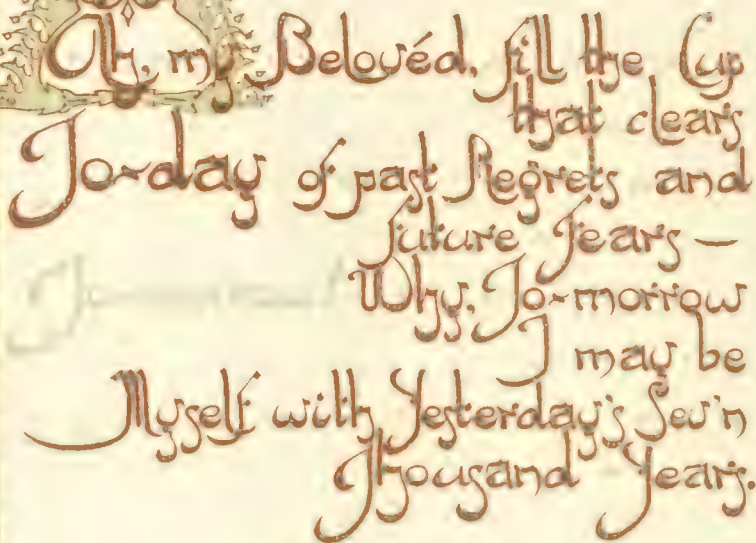 Ah, my Belovéd, fill the Cup
that clears
To-day of past Regrets and
future Fears —
Why, To-morrow
I may be
Myself with Yesterday's Sev'n
Thousand Years.